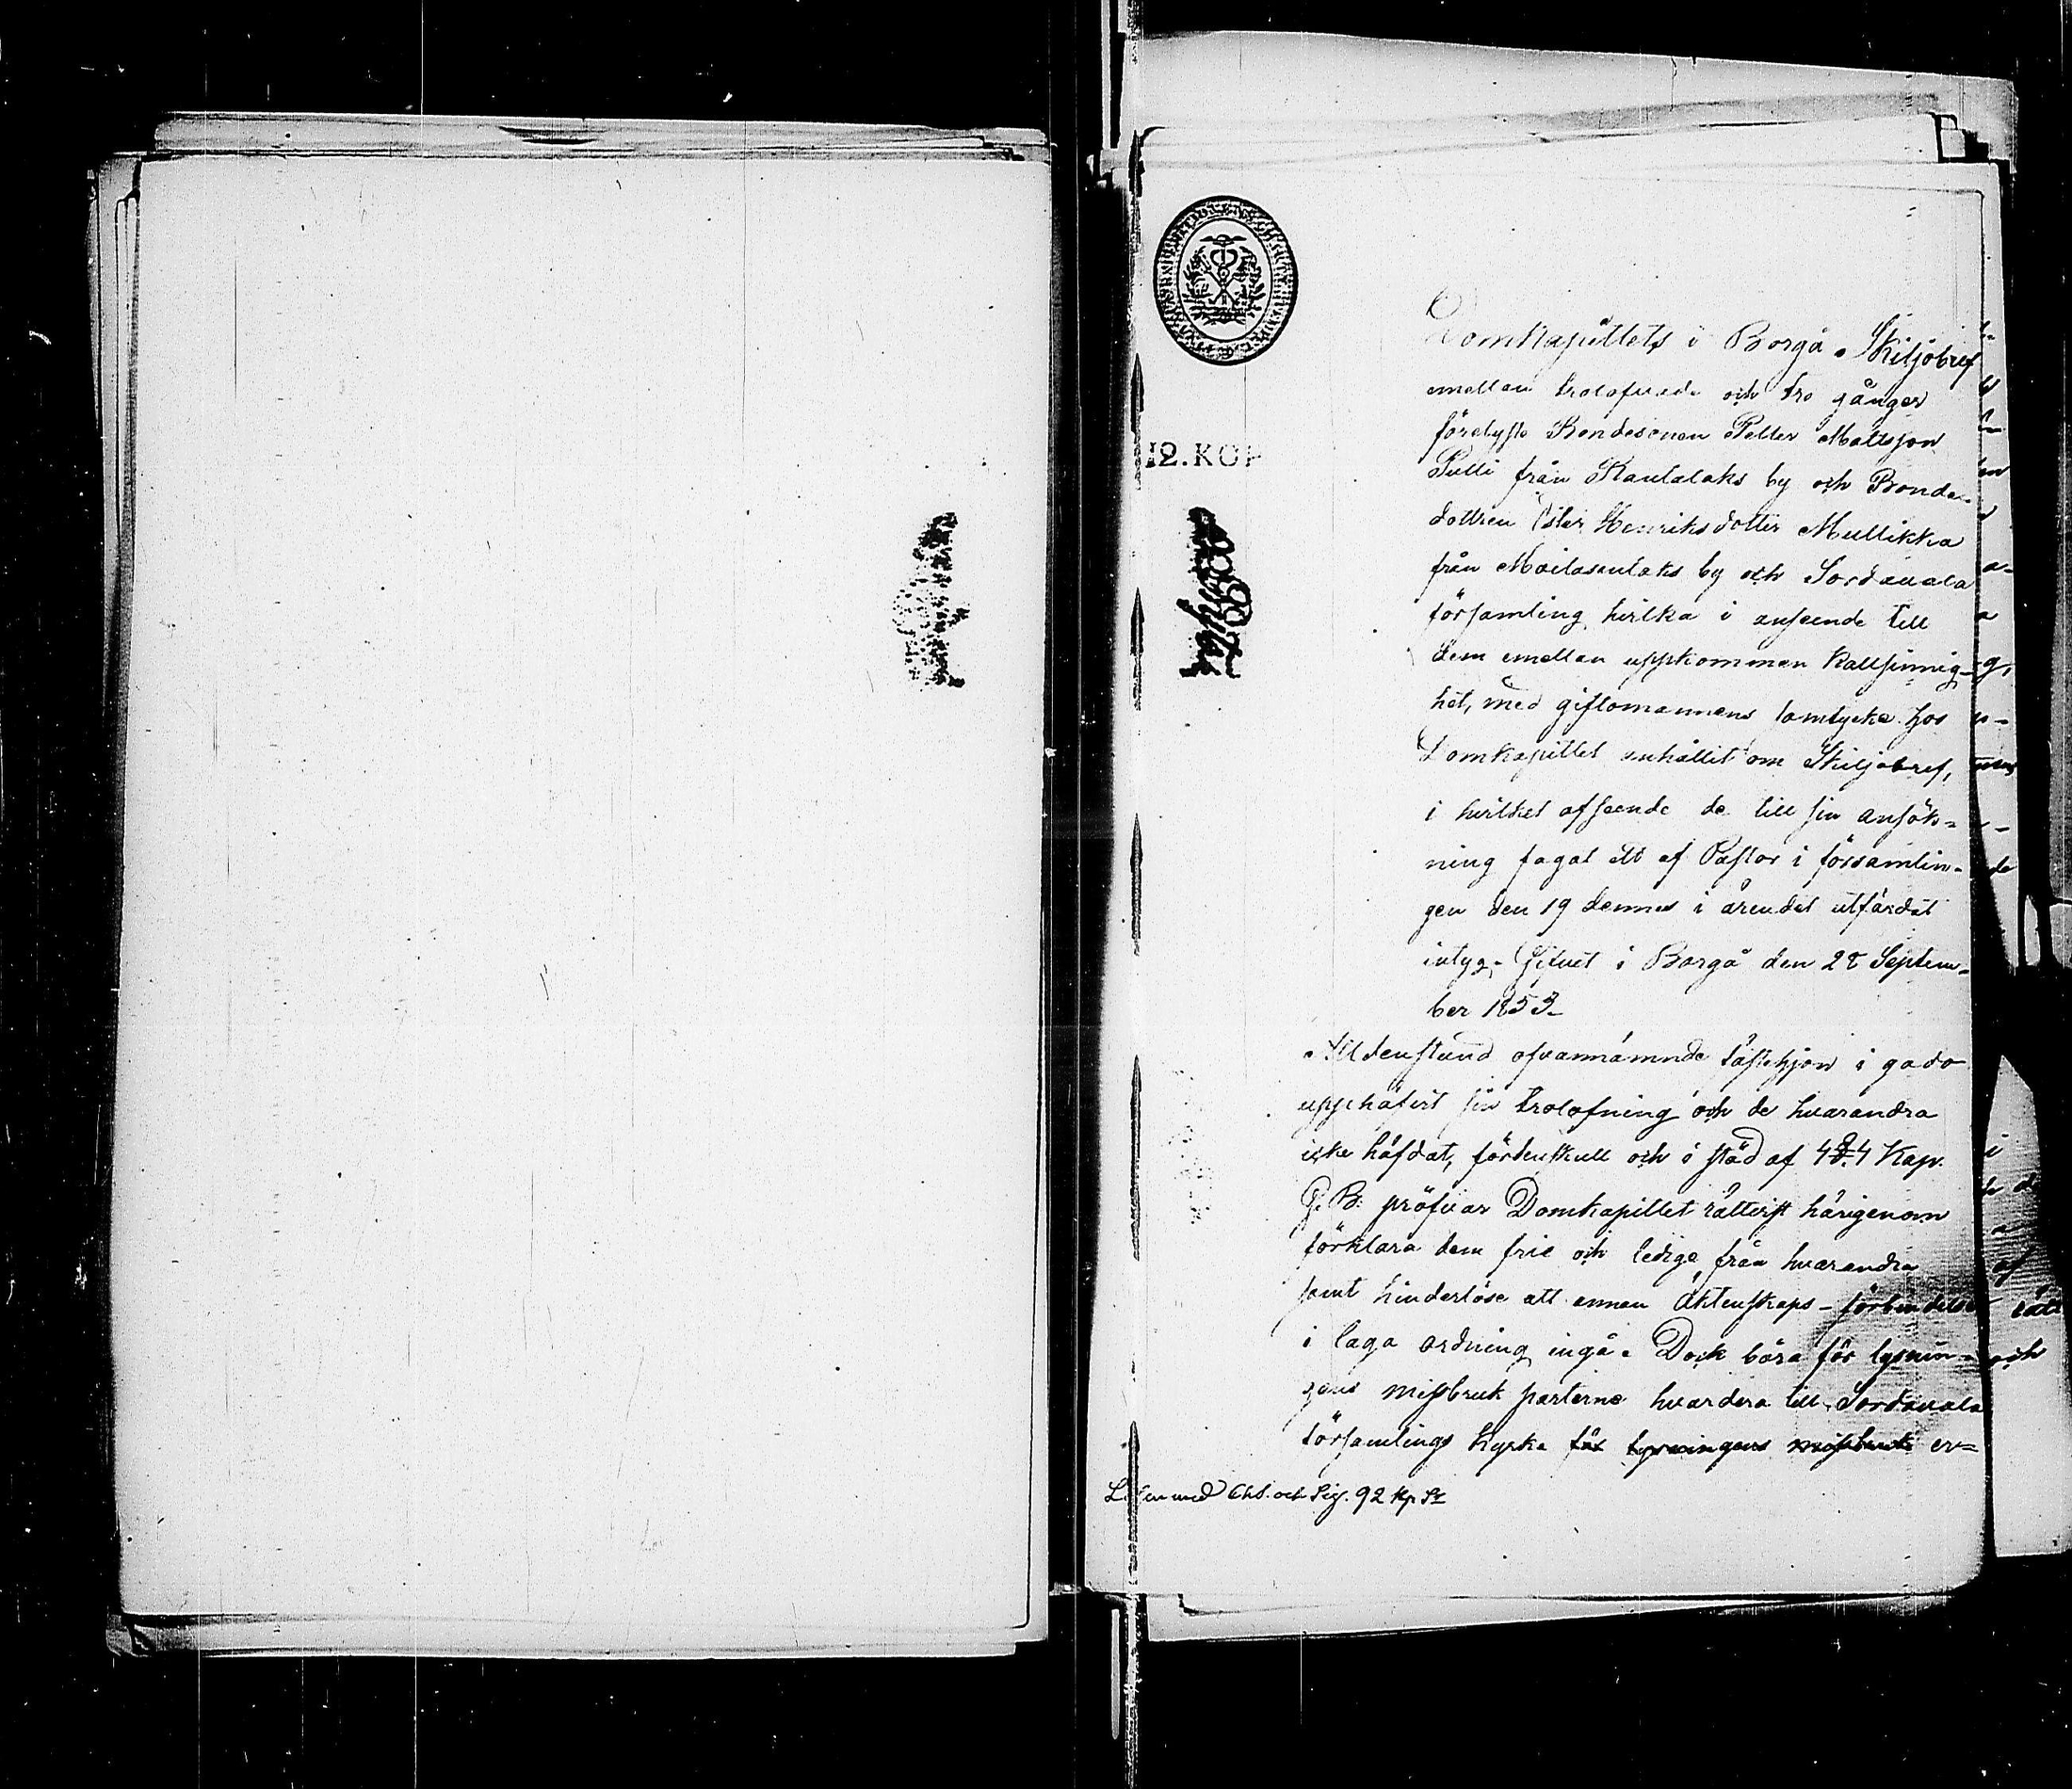 12. KOP
Domkapitlets i Borgå Skiljobref
emellan trolofvade och tre gånger
förelyste Bondesonen Petter Mattsson
Pulli från Kautalaks by och Bonde-
dottren Ester Henriksdotter Mullikka
från Moilaselaks by och Sordavala
församling, hvilka i anseende till
dem emellan uppkommen kallsinnig-
het, med giftomannens samtycke hos
Domkapitlet anhållit om Skiljobref,
i hvilket afseende de till sin ansök-
ning fogat ett af Pastor i församlin-
gen den 19 dennes i ärendet utfärdat
intyg. Gifvet i Borgå den 28 Septem-
ber 1853.
Alldenstund ofvannämnde fästehjon i godo
upphäfvit sin trolofning och de hvarandra
icke häfdat, fördenskull och i stöd af 4 §. 4 Kap.
G. B. pröfvar Domkapitlet rättvist härigenom
förklara dem frie och ledige från hvarandra
samt hinderlöse att annan äktenskaps-förbindelse
i laga ordning ingå. Dock böra för lysnin-
gens missbruk parterne hvardera till Sordavala
församlings kyrka för lysningens missbruk er-
Lösen med Chs. och Sig. 92 kp Sr